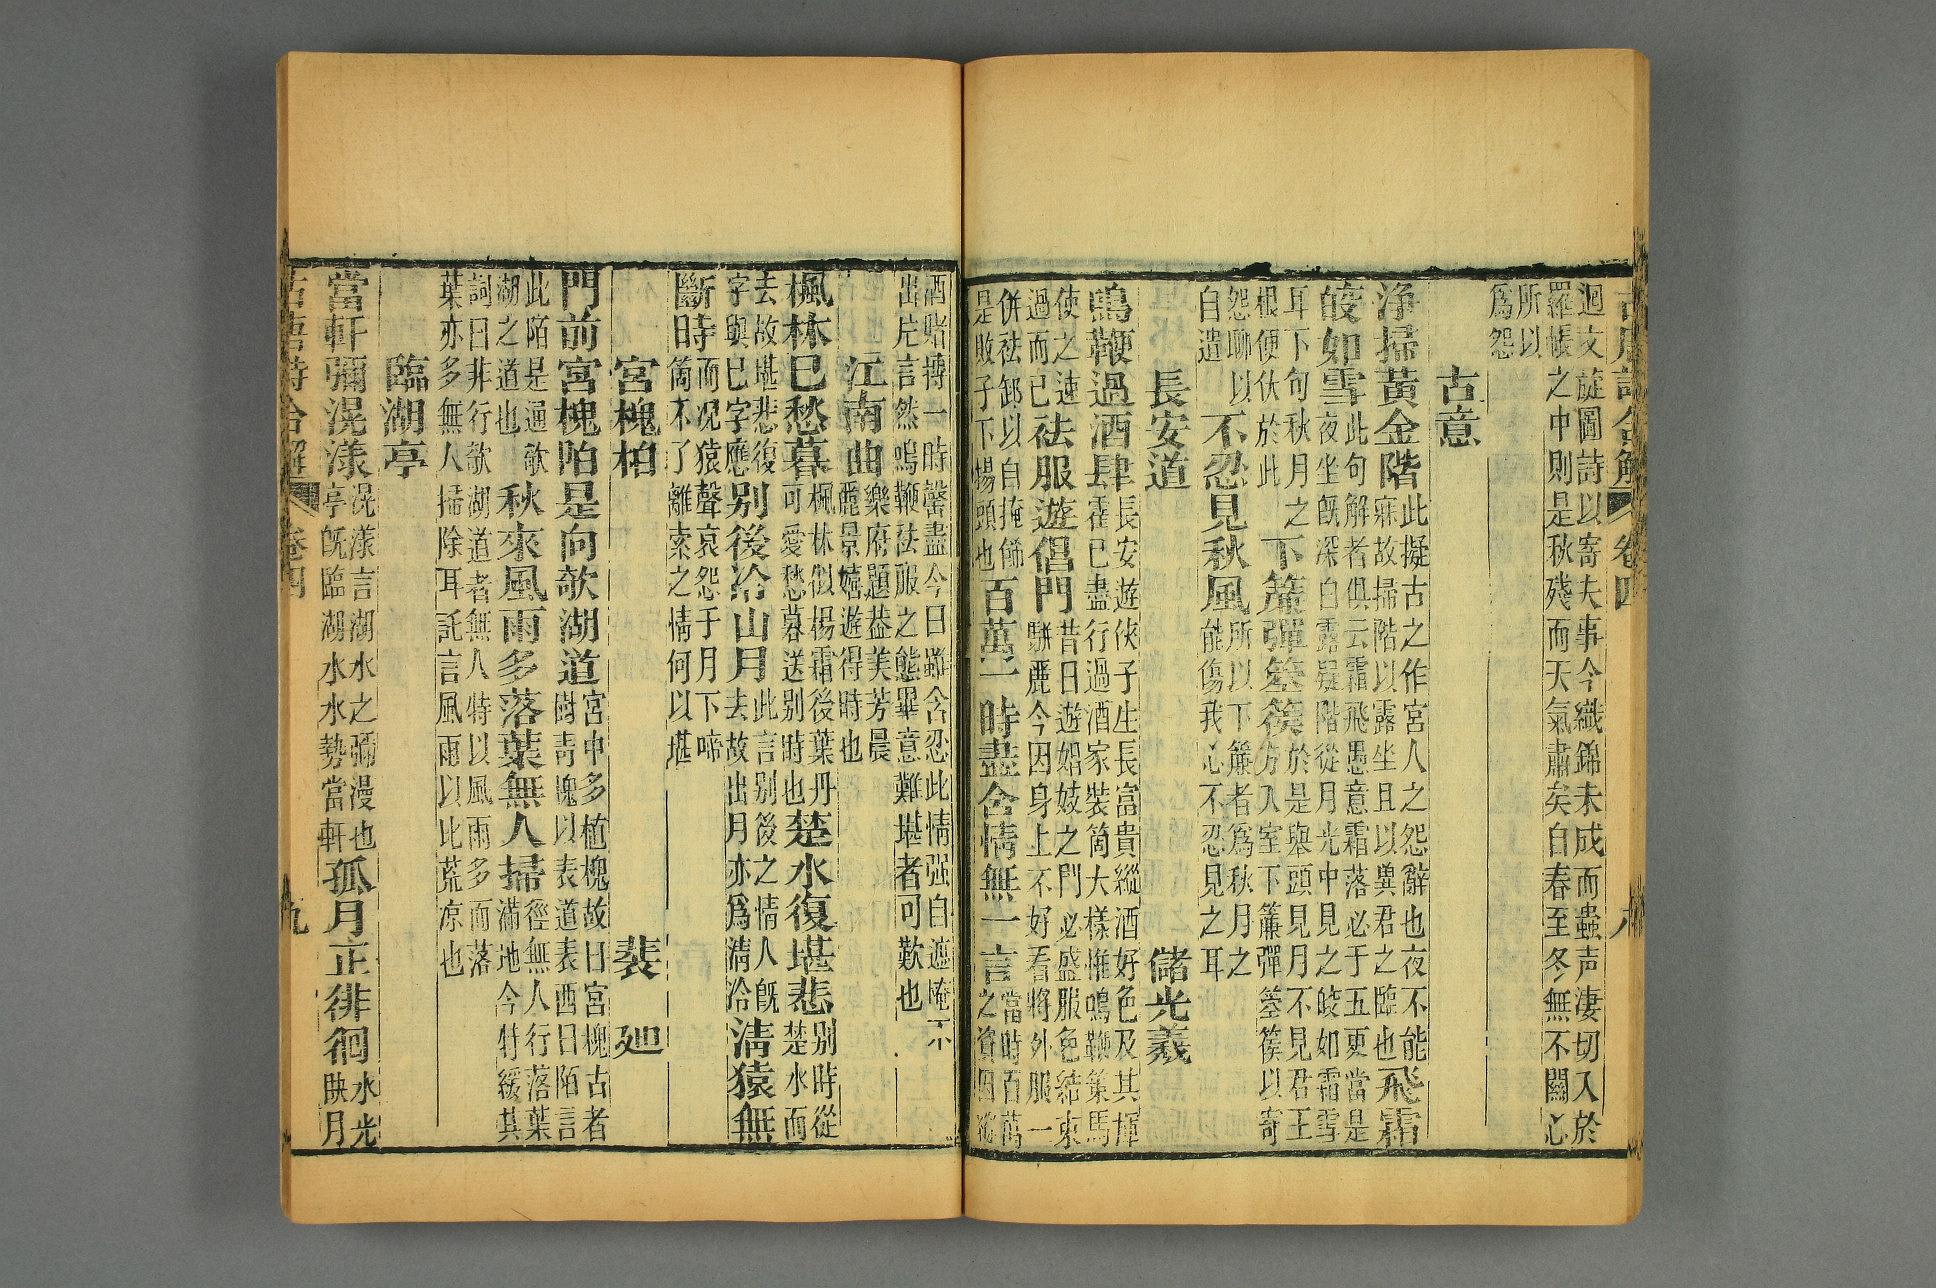 古唐詩合解 卷四 八
迴文旋圖詩以寄夫事今織錦未成而蟲声淒切入於
羅帳之中則是秋殘而天氣肅矣自春至冬無不關心
所以
為怨
古意
淨掃黃金階
此擬古之作宮人之怨辭也夜不能
寐故掃階以露坐且以兾君之臨也
飛霜
皎如雪
此句解者俱云霜飛愚意霜落必于五更當是
夜坐旣深白露凝階從月光中見之皎如霜雪
耳下句秋月之
根便伏於此
下簾彈箜篌
於是舉頭見月不見君王
方入室下簾彈箜篌以寄
怨聊以
自遣
不忍見秋風
所以下簾者為秋月之
能傷我心不忍見之耳
長安道 儲光羲
鳴鞭過酒肆
長安遊俠子生長富貴縱酒好色及其揮
霍已盡行過酒家裝箇大樣惟鳴鞭策馬
使之速
過而已
袨服遊倡門
昔日遊娼妓之門必盛服色結束
駢麗今因身上不好看將外服一
併袪卸以自掩飾
是敗子下場頭也
百萬一時盡含情無一言
當時百萬
之資因花
酒賭搏一時罄盡今日雖含忍此情强自遮掩不
出片言然鳴鞭袨服之態畢意難堪者可歎也
江南曲
樂府題葢美芳晨
麗景嬉遊得時也
楓林已愁暮
楓林似楊霜後葉丹
可愛愁暮送别時也
楚水復堪悲
别時從
楚水而
去故堪悲復
字與已字應
别後冷山月
此言别後之情人旣
去故出月亦為清冷
清猿無
斷時
而况猿聲哀怨于月下啼
箇不了離索之情何以堪
宮槐柏 裴廸
門前宮槐陌是向欹湖道
宮中多植槐故曰宮槐古者
樹青槐以表道表西曰陌言
此陌是通欹
湖之道也
秋來風雨多落葉無人掃
徑無人行落葉
滿地今特緩其
詞曰非行欹湖道者無人特以風雨多而落
葉亦多無人掃除耳託言風雨以此荒凉也
臨湖亭
當軒彌滉漾
滉漾言湖水之彌漫也
亭旣臨湖水水勢當軒
孤月正徘徊
水光
映月
古唐詩合解 卷四 九